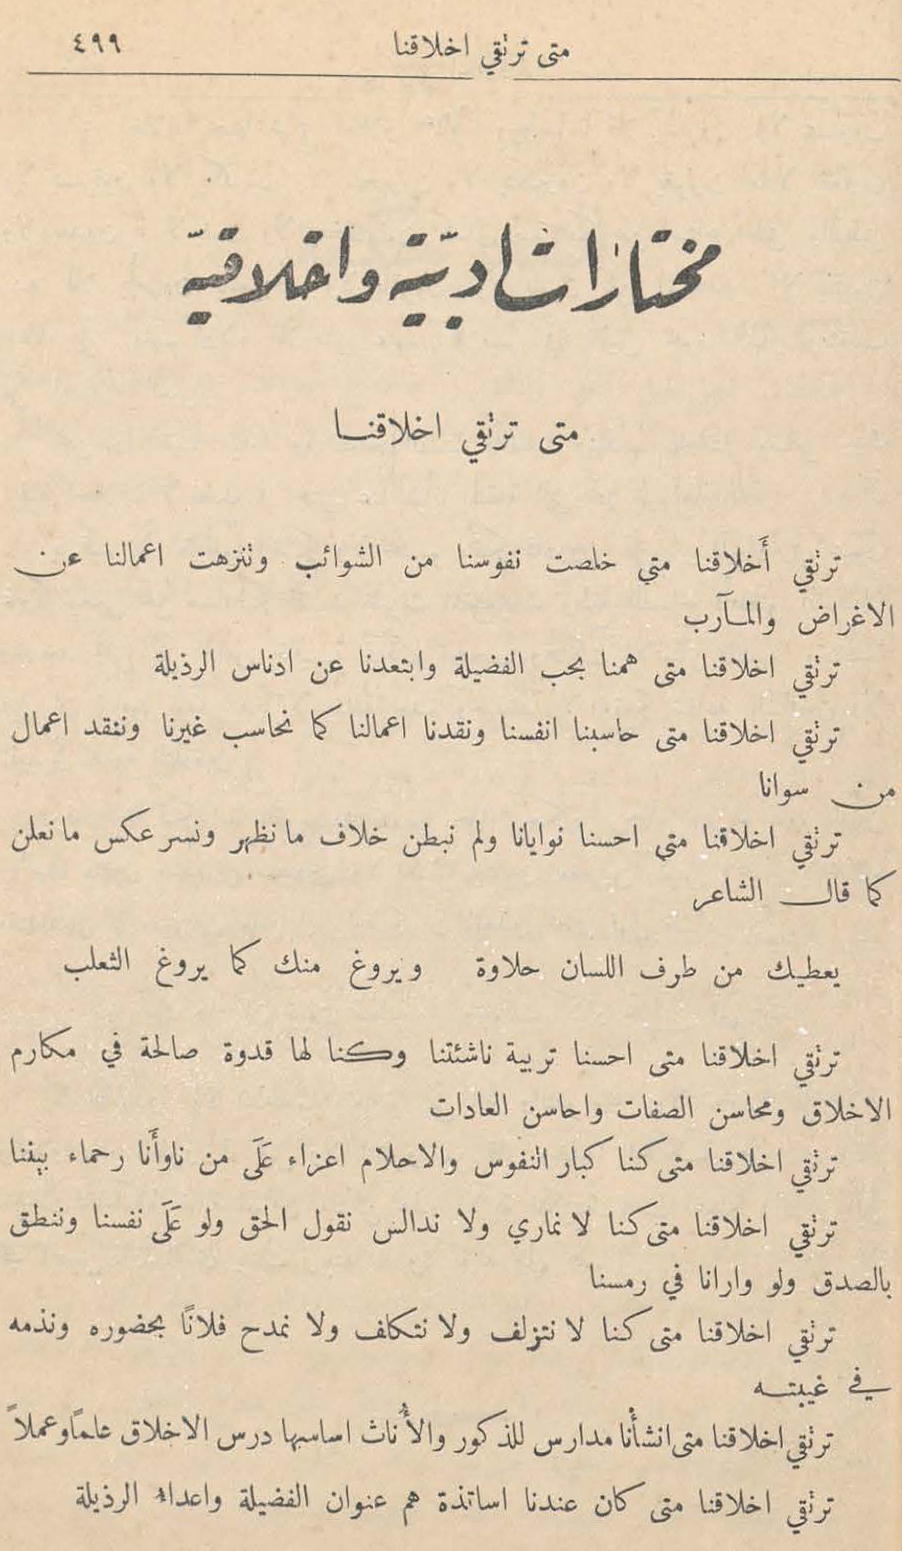 متى ترتقي اخلاقنا ٤٩٩
مختارات ادبيّة واخلاقيّة
متى ترتقي اخلاقنا
ترتقي أَخلاقنا متى خلصت نفوسنا من الشوائب وتنزهت اعمالنا عن
الاغراض والمآرب
ترتقي اخلاقنا متى همنا بحب الفضيلة وابتعدنا عن ادناس الرذيلة
ترتقي اخلاقنا متى حاسبنا انفسنا ونقدنا اعمالنا كما نحاسب غيرنا وننقد اعمال
من سوانا
ترتقي اخلاقنا متى احسنا نوايانا ولم نبطن خلاف ما نظهر ونسر عكس ما نعلن
كما قال الشاعر
يعطيك من طرف اللسان حلاوة ويروغ منك كما يروغ الثعلب
ترتقي اخلاقنا متى احسنا تربية ناشئتنا وكنا لها قدوة صالحة في مكارم
الاخلاق ومحاسن الصفات واحاسن العادات
ترتقي اخلاقنا متى كنا كبار النفوس والاحلام اعزاء عَلَى من ناوأَنا رحماء بيننا
ترتقي اخلاقنا متى كنا لا نماري ولا ندالس نقول الحق ولو عَلَى نفسنا وننطق
بالصدق ولو وارانا في رمسنا
ترتقي اخلاقنا متى كنا لا نتزلف ولا نتكلف ولا نمدح فلانًا بحضوره ونذمه
في غيبته
ترتقي اخلاقنا متى انشأْنا مدارس للذكور والأُناث اساسها درس الاخلاق علمًا وعملاً
ترتقي اخلاقنا متى كان عندنا اساتذة هم عنوان الفضيلة واعداء الرذيلة